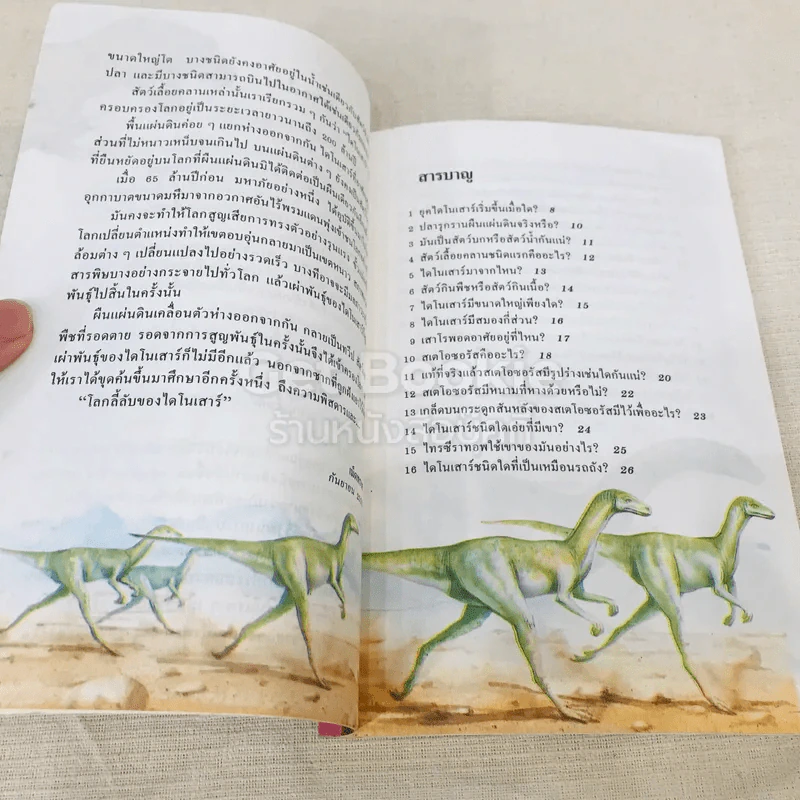 ขนาดใหญ่โต บางชนิดยังคงอาศัยอยู่ในน้ำเช่นเดียวกับ
ปลา และมีบางชนิดสามารถบินไปในอากาศได้เช่นเดียวกับ
สัตว์เลื้อยคลานเหล่านั้นเราเรียกรวม ๆ กันว่า
ครอบครองโลกอยู่เป็นระยะเวลายาวนานถึง 200 ล้านปี
พื้นแผ่นดินค่อย ๆ แยกห่างออกจากกัน ไดโนเสาร์
ส่วนที่ไม่หนาวเหน็บจนเกินไป บนแผ่นดินต่าง ๆ
ที่ยืนหยัดอยู่บนโลกที่ผืนแผ่นดินมิได้ติดต่อเป็นผืนเดียว
เมื่อ 65 ล้านปีก่อน มหาภัยอย่างหนึ่ง ได้อุบัติขึ้น
อุกกาบาตขนาดมหึมาจากอวกาศอันไร้พรมแดนพุ่งเข้าชน
มันคงจะทำให้โลกสูญเสียการทรงตัวอย่างรุนแรง
โลกเปลี่ยนตำแหน่งทำให้เขตอบอุ่นกลายมาเป็นเขตหนาว
ล้อมต่าง ๆ เปลี่ยนแปลงไปอย่างรวดเร็ว บางทีอาจจะมี
สารพิษบางอย่างกระจายไปทั่วโลก แล้วเผ่าพันธุ์ของไดโนเสาร์
พันธุ์ไปสิ้นในครั้งนั้น
ผืนแผ่นดินเคลื่อนตัวห่างออกจากกัน กลายเป็นทวีป
พืชที่รอดตาย รอดจากการสูญพันธุ์ในครั้งนั้นจึงได้
เผ่าพันธุ์ของไดโนเสาร์ก็ไม่มีอีกแล้ว นอกจากซากที่ถูก
ให้เราได้ขุดค้นขึ้นมาศึกษาอีกครั้งหนึ่ง ถึงความพิสดาร
"โลกลี้ลับของไดโนเสาร์"
กันยายน
สารบาญ
1 ยุคไดโนเสาร์เริ่มขึ้นเมื่อใด? 8
2 ปลารุกรานผืนแผ่นดินจริงหรือ? 10
3 มันเป็นสัตว์บกหรือสัตว์น้ำกันแน่? 11
4 สัตว์เลื้อยคลานชนิดแรกคืออะไร? 12
5 ไดโนเสาร์มาจากไหน? 13
6 สัตว์กินพืชหรือสัตว์กินเนื้อ? 14
7 ไดโนเสาร์มีขนาดใหญ่เพียงใด? 15
8 ไดโนเสาร์มีสมองกี่ส่วน? 16
9 เสาโรพอดอาศัยอยู่ที่ไหน? 17
10 สเตโอซอรัสคืออะไร? 18
11 แท้ที่จริงแล้วสเตโอซอรัสมีรูปร่างเช่นใดกันแน่? 20
12 สเตโอซอรัสมีหนามที่หางด้วยหรือไม่? 22
13 เกล็ดบนกระดูกสันหลังของสเตโอซอรัสมีไว้เพื่ออะไร? 23
14 ไดโนเสาร์ชนิดใดเอ่ยที่มีเขา? 24
15 ไทรซีราทอพใช้เขาของมันอย่างไร? 25
16 ไดโนเสาร์ชนิดใดที่เป็นเหมือนรถถัง? 26